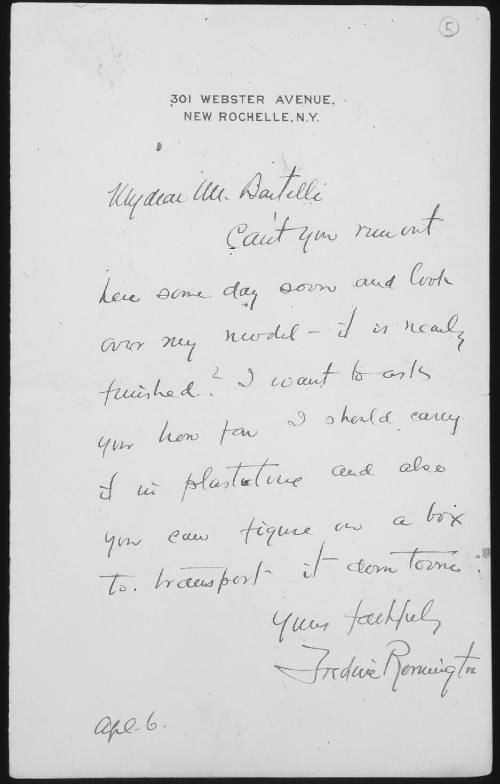 5
301 WEBSTER AVENUE,
NEW ROCHELLE, N.Y.
My dear Mr. Bertelli
Can't you run out
here some day soon and look
over my model - it is nearly
finished? I want to ask
you how far I should carry
it in plastoline and also
you can figure on a box
to transport it down town.
Yours faithfully
Frederic Remington
Apl. 6.